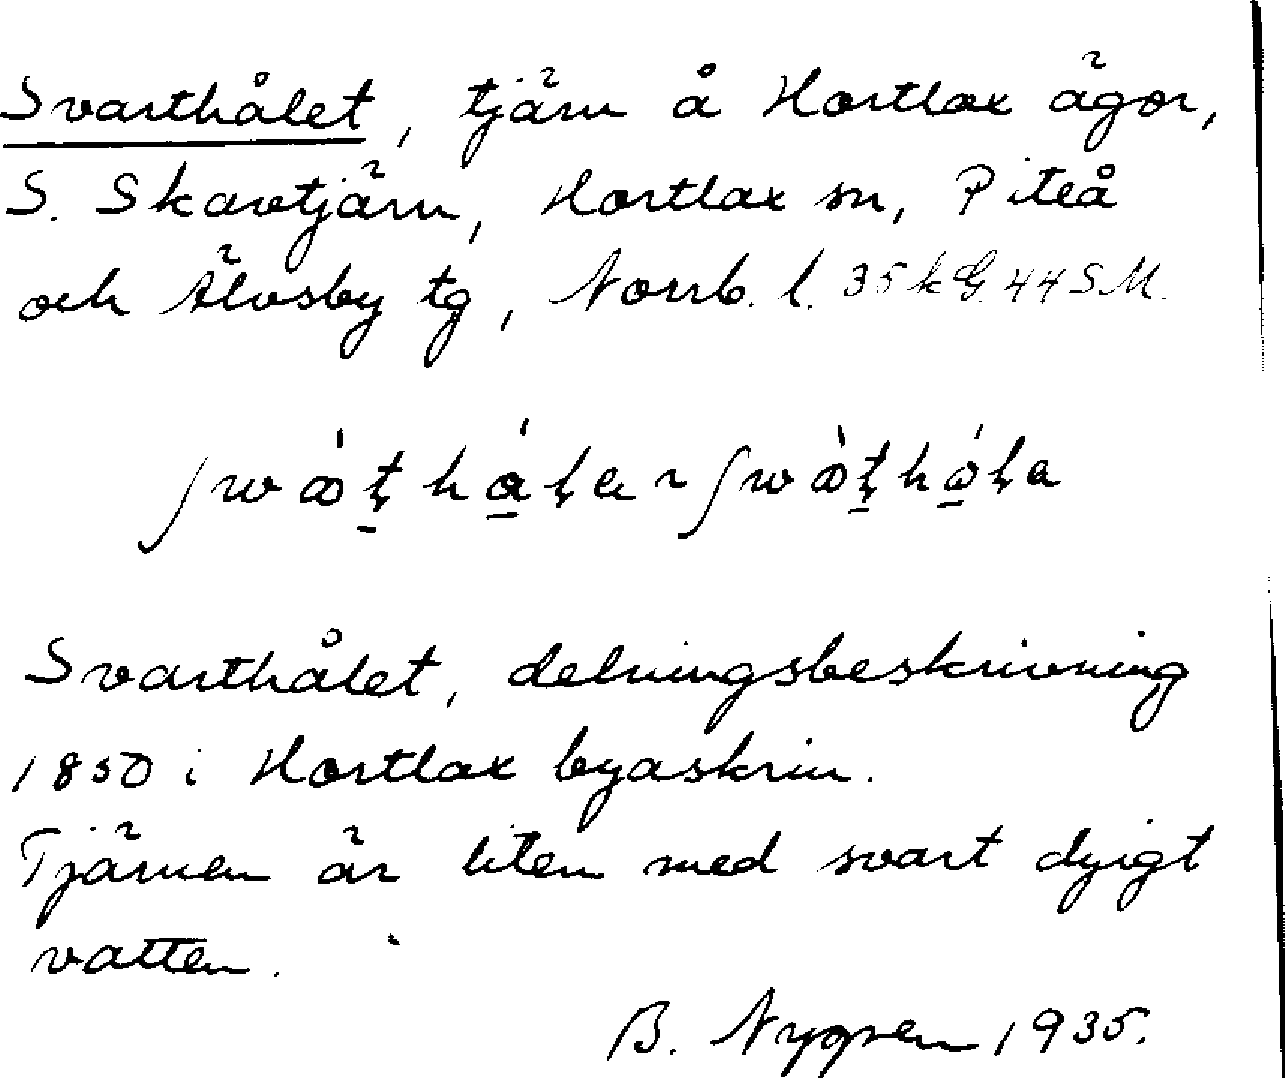 Svarthålet, tjärn å Hortlax ägor,
S. Skavtjärn, Hortlax sn, Piteå
och Älvsby tg, Norrb. l. 35 k G. 44 S M.
Svarthålet, delningsbeskrivning
1850 i Hortlax byaskrin.
Tjärnen är liten med svart dyigt
vatten.
B. Nygren 1935.